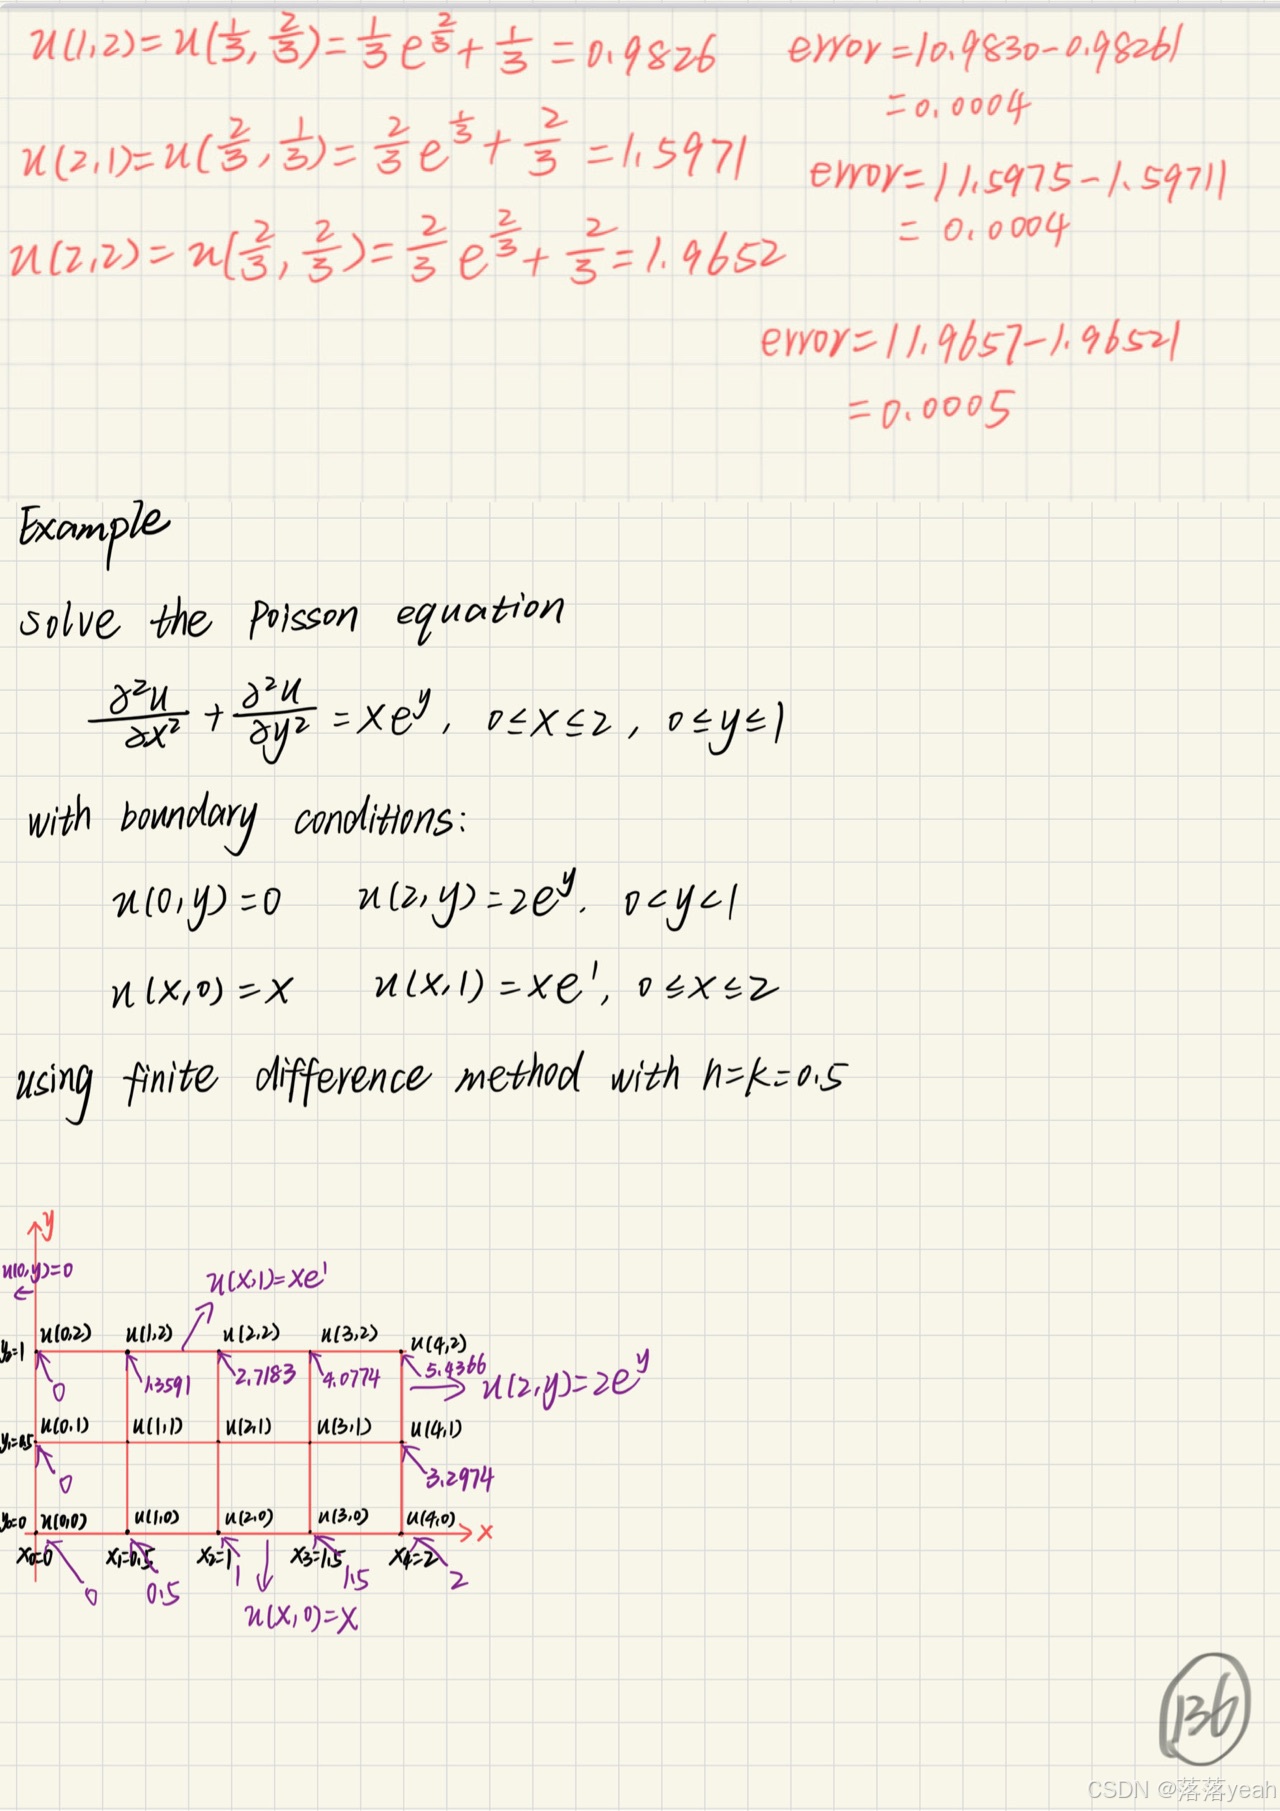 u(1,2)=u(1/3, 2/3)=1/3 e^(2/3)+1/3=0.9826 error=|0.9830-0.9826|
=0.0004
u(2,1)=u(2/3, 1/3)=2/3 e^(1/3)+2/3=1.5971 error=|1.5975-1.5971|
=0.0004
u(2,2)=u(2/3, 2/3)=2/3 e^(2/3)+2/3=1.9652
error=|1.9657-1.9652|
=0.0005
Example
solve the Poisson equation
∂²u/∂x²+∂²u/∂y²=xe^y, 0≤x≤2, 0≤y≤1
with boundary conditions:
u(0,y)=0 u(2,y)=2e^y. 0<y<1
u(x,0)=x u(x,1)=xe¹, 0≤x≤2
using finite difference method with h=k=0.5
y
u(0,y)=0
u(x,1)=xe¹
u(0,2) u(1,2) u(2,2) u(3,2) u(4,2)
y₂=1
0 1.3591 2.7183 4.0774 5.4366
u(2,y)=2e^y
u(0,1) u(1,1) u(2,1) u(3,1) u(4,1)
y₁=0.5
0 3.2974
y₀=0 u(0,0) u(1,0) u(2,0) u(3,0) u(4,0)
x
x₀=0 x₁=0.5 x₂=1 x₃=1.5 x₄=2
0 0.5 1 1.5 2
u(x,0)=x
136
CSDN @落落yeah